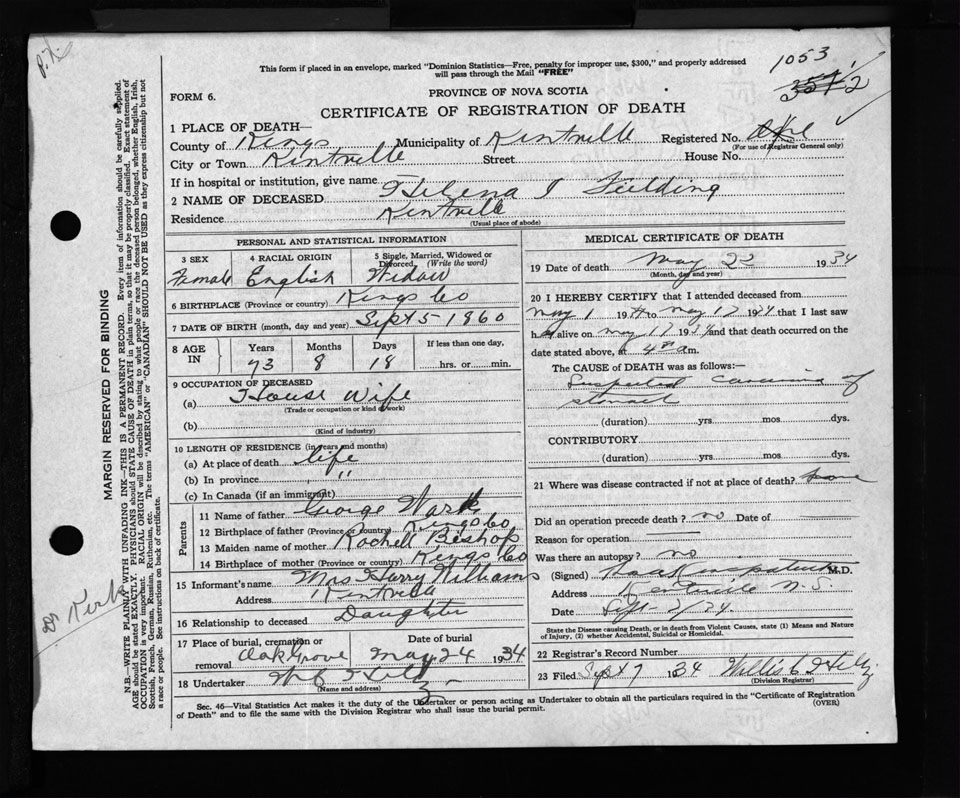 1053
3572
This form if placed in an envelope, marked "Dominion Statistics—Free, penalty for improper use, $300," and properly addressed
will pass through the Mail "FREE"
PROVINCE OF NOVA SCOTIA
FORM 6.
CERTIFICATE OF REGISTRATION OF DEATH
1 PLACE OF DEATH—
County of Kings Municipality of Kintville Registered No.
(For use of Registrar General only)
City or Town Kintville Street House No.
If in hospital or institution, give name
2 NAME OF DECEASED Helena J Fielding
Residence Kintvill
(Usual place of abode)
PERSONAL AND STATISTICAL INFORMATION
3 SEX 4 RACIAL ORIGIN 5 Single, Married, Widowed or
Divorced. (Write the word)
Female English Widow
6 BIRTHPLACE (Province or country) Kings Co
7 DATE OF BIRTH (month, day and year) Sept 5 1860
8 AGE IN Years Months Days If less than one day,
73 8 18 hrs. or min.
9 OCCUPATION OF DECEASED
(a) House Wife
(Trade or occupation or kind of work)
(b)
(Kind of industry)
10 LENGTH OF RESIDENCE (in years and months)
(a) At place of death life
(b) In province "
(c) In Canada (if an immigrant)
Parents
11 Name of father George Ward
12 Birthplace of father (Province or country) Kings Co
13 Maiden name of mother Rachell Bishop
14 Birthplace of mother (Province or country) Kings Co
15 Informant's name Mrs Harry Williams
Address Kintvill
16 Relationship to deceased Daughter
17 Place of burial, cremation or Date of burial
removal Oak Grove May 24 1934
18 Undertaker
(Name and address)
MEDICAL CERTIFICATE OF DEATH
19 Date of death May 22 1934
(Month, day and year)
20 I HEREBY CERTIFY that I attended deceased from
May 1 19 to May 17 1934 that I last saw
h alive on May 17 1934 and that death occurred on
the date stated above, at 4 a m.
The CAUSE of DEATH was as follows:—
Suspected carcinoma of
stomach
(duration) yrs. mos. dys.
CONTRIBUTORY
(duration) yrs. mos. dys.
21 Where was disease contracted if not at place of death?
Did an operation precede death? no Date of
Reason for operation —
Was there an autopsy? no
(Signed) M.D.
Address Kentville N.S.
Date Sept 7/34
State the Disease causing Death, or in death from Violent Causes, state (1) Means and Nature
of Injury, (2) whether Accidental, Suicidal or Homicidal.
22 Registrar's Record Number
23 Filed Sept 7 1934 Willis
(Division Registrar)
Sec. 46—Vital Statistics Act makes it the duty of the Undertaker or person acting as Undertaker to obtain all the particulars required in the "Certificate of Registration
of Death" and to file the same with the Division Registrar who shall issue the burial permit.
(OVER)
MARGIN RESERVED FOR BINDING
N.B.—WRITE PLAINLY WITH UNFADING INK—THIS IS A PERMANENT RECORD. Every item of information should be carefully supplied.
AGE should be stated EXACTLY. PHYSICIANS should STATE CAUSE OF DEATH in plain terms, so that it may be properly classified. Exact statement of
OCCUPATION is very important. RACIAL ORIGIN will be described by stating to what people or race the deceased person belonged, whether English, Irish,
Scottish, French, German, Russian, Ruthenian, etc. The terms "AMERICAN" or "CANADIAN" SHOULD NOT BE USED as they express citizenship but not
a race or people. See instructions on back of certificate.